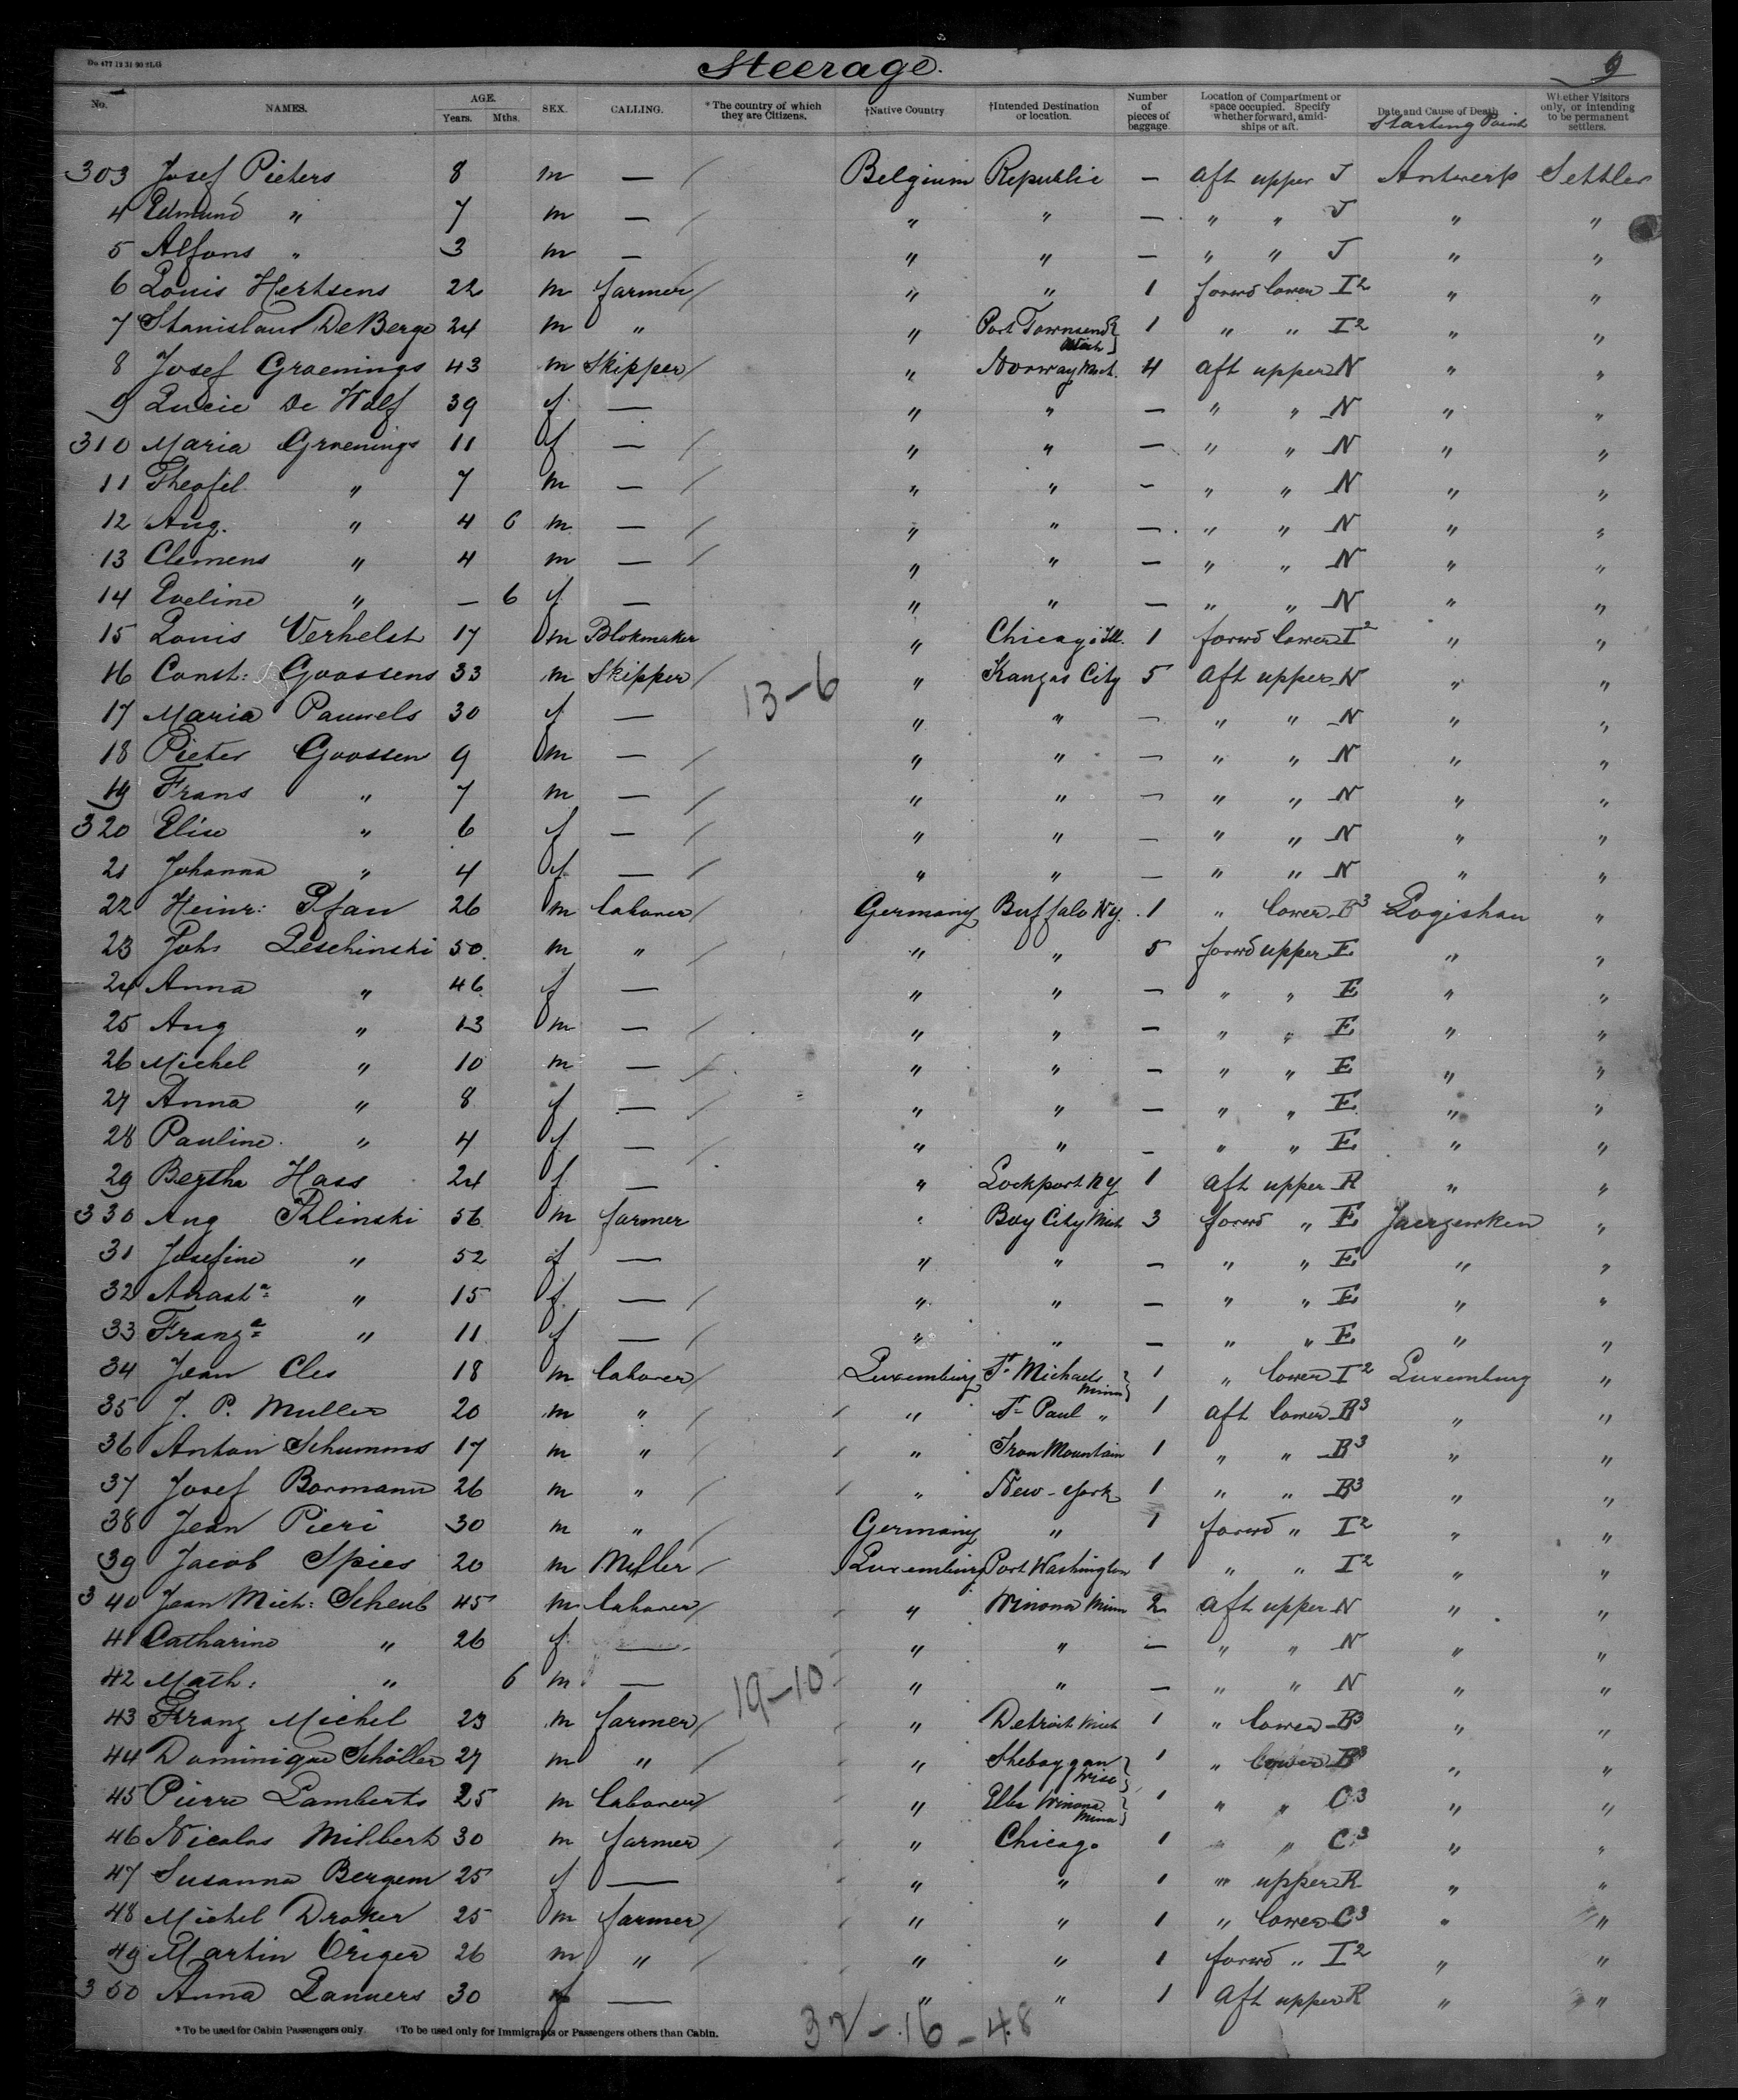 Steerage. 9
No. NAMES. AGE. Years. Mths. SEX. CALLING. *The country of which they are Citizens. †Native Country †Intended Destination or location. Number of pieces of baggage. Location of Compartment or space occupied. Specify whether forward, amidships or aft. Date and Cause of Death Starting Point Whether Visitors only, or intending to be permanent settlers.
303 Josef Pieters 8 m — / Belgium Republic — aft upper J Antwerp Settler
4 Edmund " 7 m — / " " — " " J " "
5 Alfons " 3 m — " " — " " J " "
6 Louis Hertsens 22 m farmer / " " 1 forwd lower I2 " "
7 Stanislaus De Berge 24 m " " Port Townsend Wash } 1 " " I2 " "
8 Josef Groenings 43 m Skipper / " Norway Mich. 4 aft upper N " "
9 Lucie De Wolf 39 f — " " — " " N " "
310 Maria Groenings 11 f — / " " — " " N " "
11 Theofil " 7 m — / " " — " " N " "
12 Aug. " 4 6 m — / " " — " " N " "
13 Clemens " 4 m — / " " — " " N " "
14 Eveline " — 6 f — " " — " " N " "
15 Louis Verhelst 17 m Blokmaker " Chicago Ill. 1 forwd lower I2 " "
16 Const: Goossens 33 m Skipper / 13-6 " Kansas City 5 aft upper N " "
17 Maria Pauwels 30 f — " " — " " N " "
18 Pieter Goossen 9 m — / " " — " " N " "
19 Frans " 7 m — / " " — " " N " "
320 Elise " 6 f — / " " — " " N " "
21 Johanna " 4 f — / " " — " " N " "
22 Heinr: Pfau 26 m laborer / Germany Buffalo Ny. 1 " lower B3 "
23 Joh Leschinski 50 m " / " " 5 forwd upper E " "
24 Anna " 46 f — " " — " " E " "
25 Aug " 13 m — / " " — " " E " "
26 Michel " 10 m — / " " — " " E " "
27 Anna " 8 f — / " " — " " E " "
28 Pauline " 4 f — / " " — " " E " "
29 Bertha Hass 24 f — " Lockport Ny 1 aft upper R " "
330 Aug 56 m farmer " Bay City Mich 3 forwd " E "
31 Josefine " 52 f — " " — " " E " "
32 Anasta " 15 f — / " " — " " E " "
33 Franza " 11 f — / " " — " " E " "
34 Jean Cles 18 m laborer / Luxemburg St Michaels Minn } 1 " lower I2 Luxemburg "
35 J. P. Muller 20 m " / " St Paul " 1 aft lower B3 " "
36 Anton Schumms 17 m " / " Iron Mountain 1 " " B3 " "
37 Josef Bormann 26 m " / " New-York 1 " " B3 " "
38 Jean Pieri 30 m " / Germany " 1 forwd " I2 " "
39 Jacob Spies 20 m Miller / Luxemburg Port Washington 1 " " I2 " "
340 Jean Mich: Scheub 45 m laborer / " Winona Minn 2 aft upper N " "
41 Catharine " 26 f — " " — " " N " "
42 Math: " 6 m — 19-10 " " — " " N " "
43 Franz Michel 23 m farmer / " Detroit Mich 1 " lower B3 " "
44 Dominique Schöller 27 m " / " Sheboygan Wisc } 1 " lower B3 " "
45 Pierre Lamberts 25 m laborer / " Elba Winona Minn } 1 " " C3 " "
46 Nicolas Milbert 30 m farmer / " Chicago 1 " " C3 " "
47 Susanna Bergem 25 f — " " 1 " upper R " "
48 Michel Droker 25 m farmer / " " 1 " lower C3 " "
49 Martin Origer 26 m " / " " 1 forwd " I2 " "
350 Anna Lanners 30 f — " " 1 aft upper R " "
*To be used for Cabin Passengers only. †To be used only for Immigrants or Passengers others than Cabin. 32-16-48